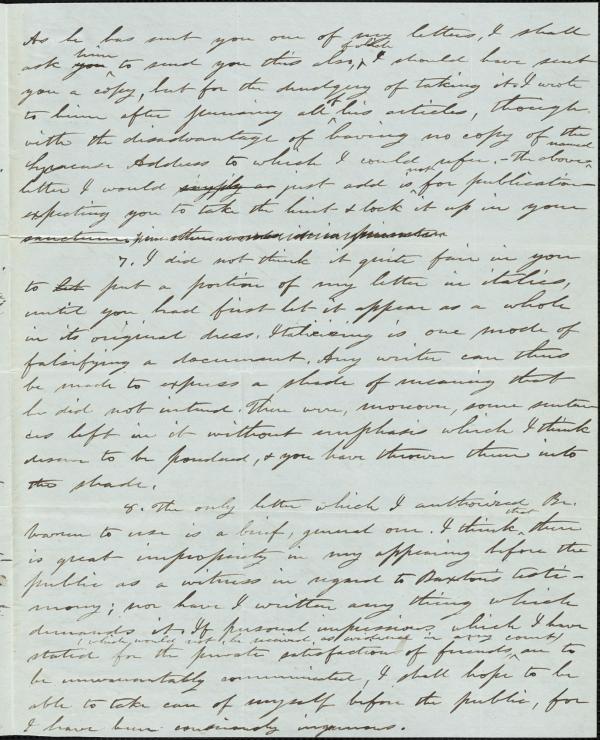 As he has sent you one of my letters, I shall
ask him to send you this also, I should have sent
you a copy, but for the drudgery of taking it. I wrote
to him after perusing all his articles, though
with the disadvantage of having no copy of the
Syracuse Address to which I could refer. - The above named
letter I would just add is not for publication
expecting you to take the hint & lock it up in your
sanctum
7. I did not think it quite fair in you
to put a portion of my letter in italics,
until you had first let it appear as a whole
in its original dress. Italicising is one mode of
falsifying a document. Any writer can thus
be made to express a shade of meaning that
he did not intend. There were, moreover, some senten-
ces left in it without emphasis which I think
deserve to be pondered, & you have thrown them into
the shade.
8. The only letter which I authorized Br.
to use is a brief, general one. I think that there
is great impropriety in my appearing before the
public as a witness in regard to Baxter's testi-
mony; nor have I written any thing which
demands it. If personal impressions, which I have
(which would not be received, as evidence in any court)
stated for the private satisfaction of friends, are to
be unwarrantably communicated, I shall hope to be
able to take care of myself before the public, for
I have been ingenuous.